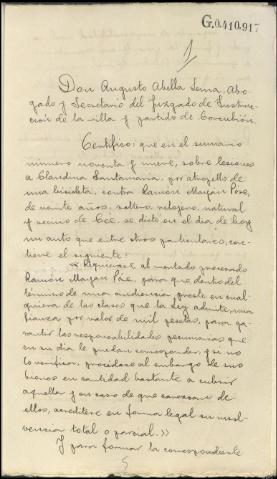 G.0.410.917
1
Don Augusto Abella Sena, Abo-
gado y Secretario del Juzgado de Instruc-
ción de la villa y partido de Corcubión.
Certifico: que en el sumario
número noventa y nueve, sobre lesiones
a Claudina Santamaria, por atropello de
una bicicleta, contra Ramón Mayán Pose,
de veinte años, soltero, relojero, natural
y vecino de Cée, se dictó en el dia de hoy
un auto que entre otros particulares, con-
tiene el siguiente:
Requierase al mentado procesado
Ramón Mayan Pose, para que dentro del
término de una audiencia, preste en cual-
quiera de las clases que la ley admite, una
fianza por valor de mil pesetas, para ga-
rantir las responsabilidades pecuniarias que
en su dia le puedan corresponder, y si no
lo verifica, procédase al embargo de sus
bienes en cantidad bastante a cubrir
aquella y en caso de que careciere de
ellos, acreditese en forma legal su insol-
vencia total o parcial.»
Y para formar la correspondiente